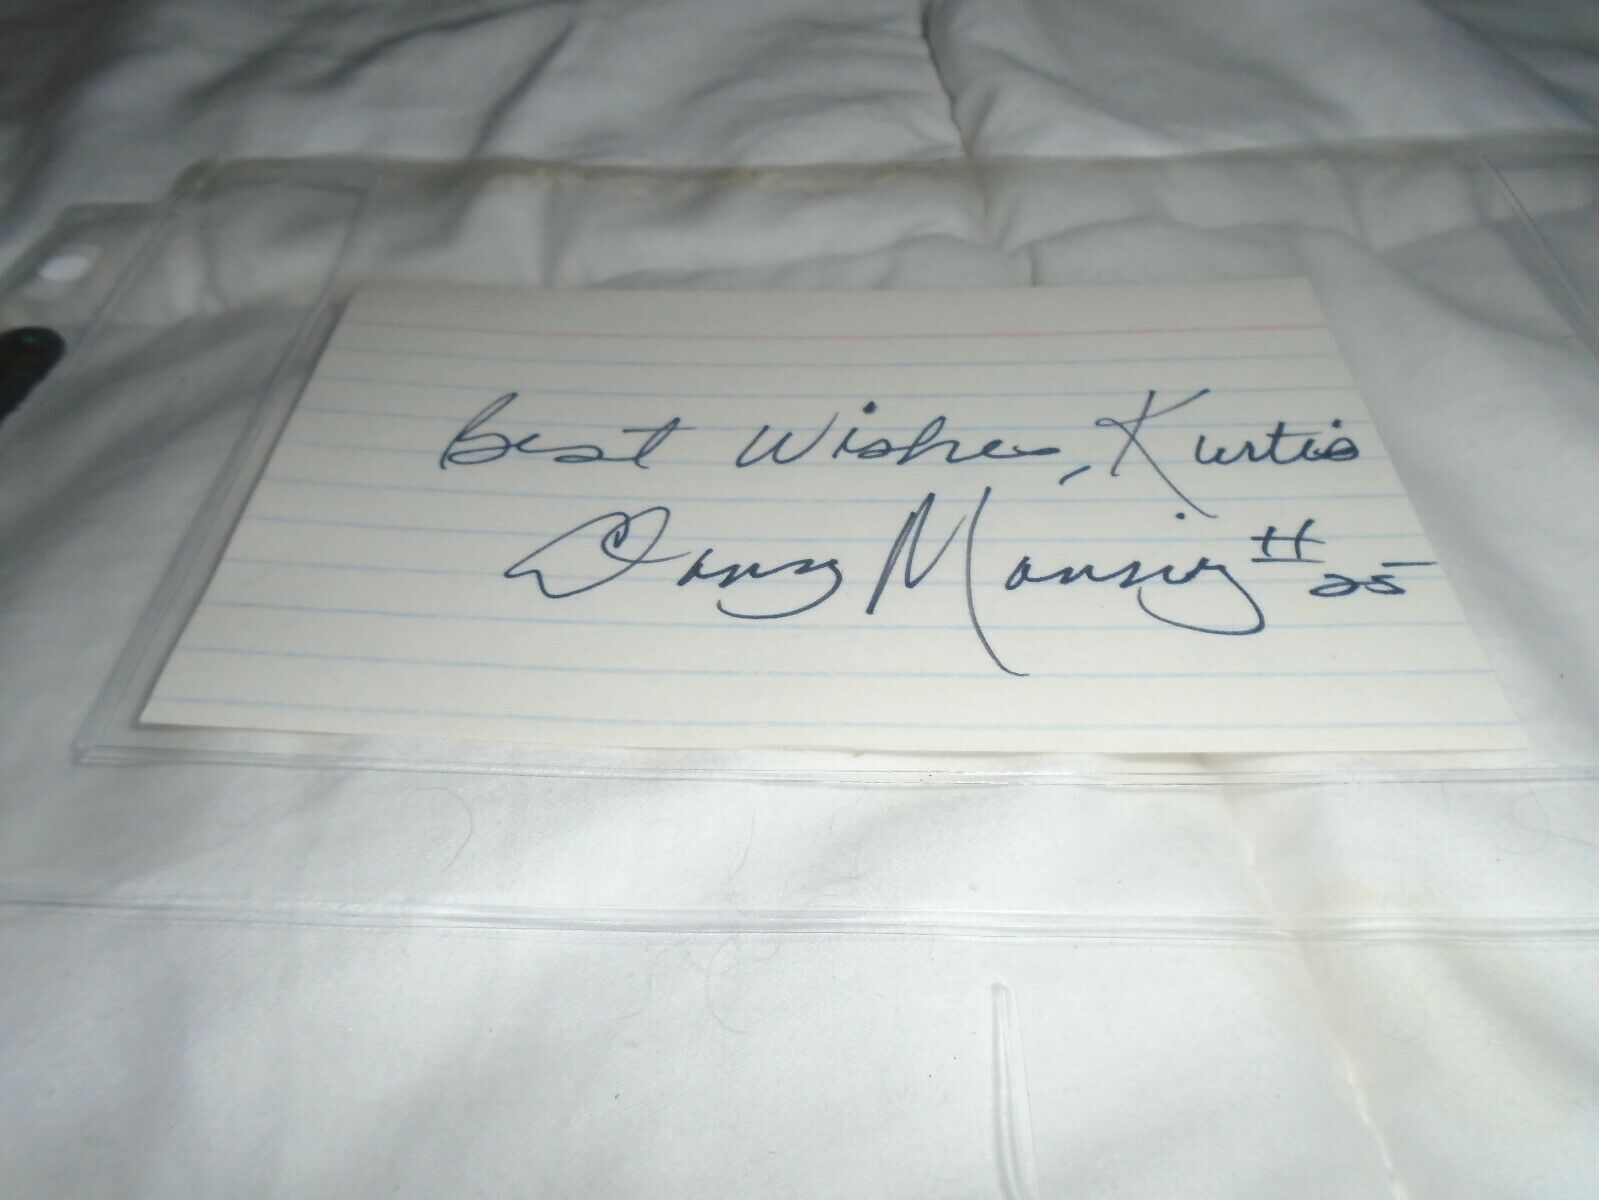 Best Wishes, Kurtis
Danny Manning #25